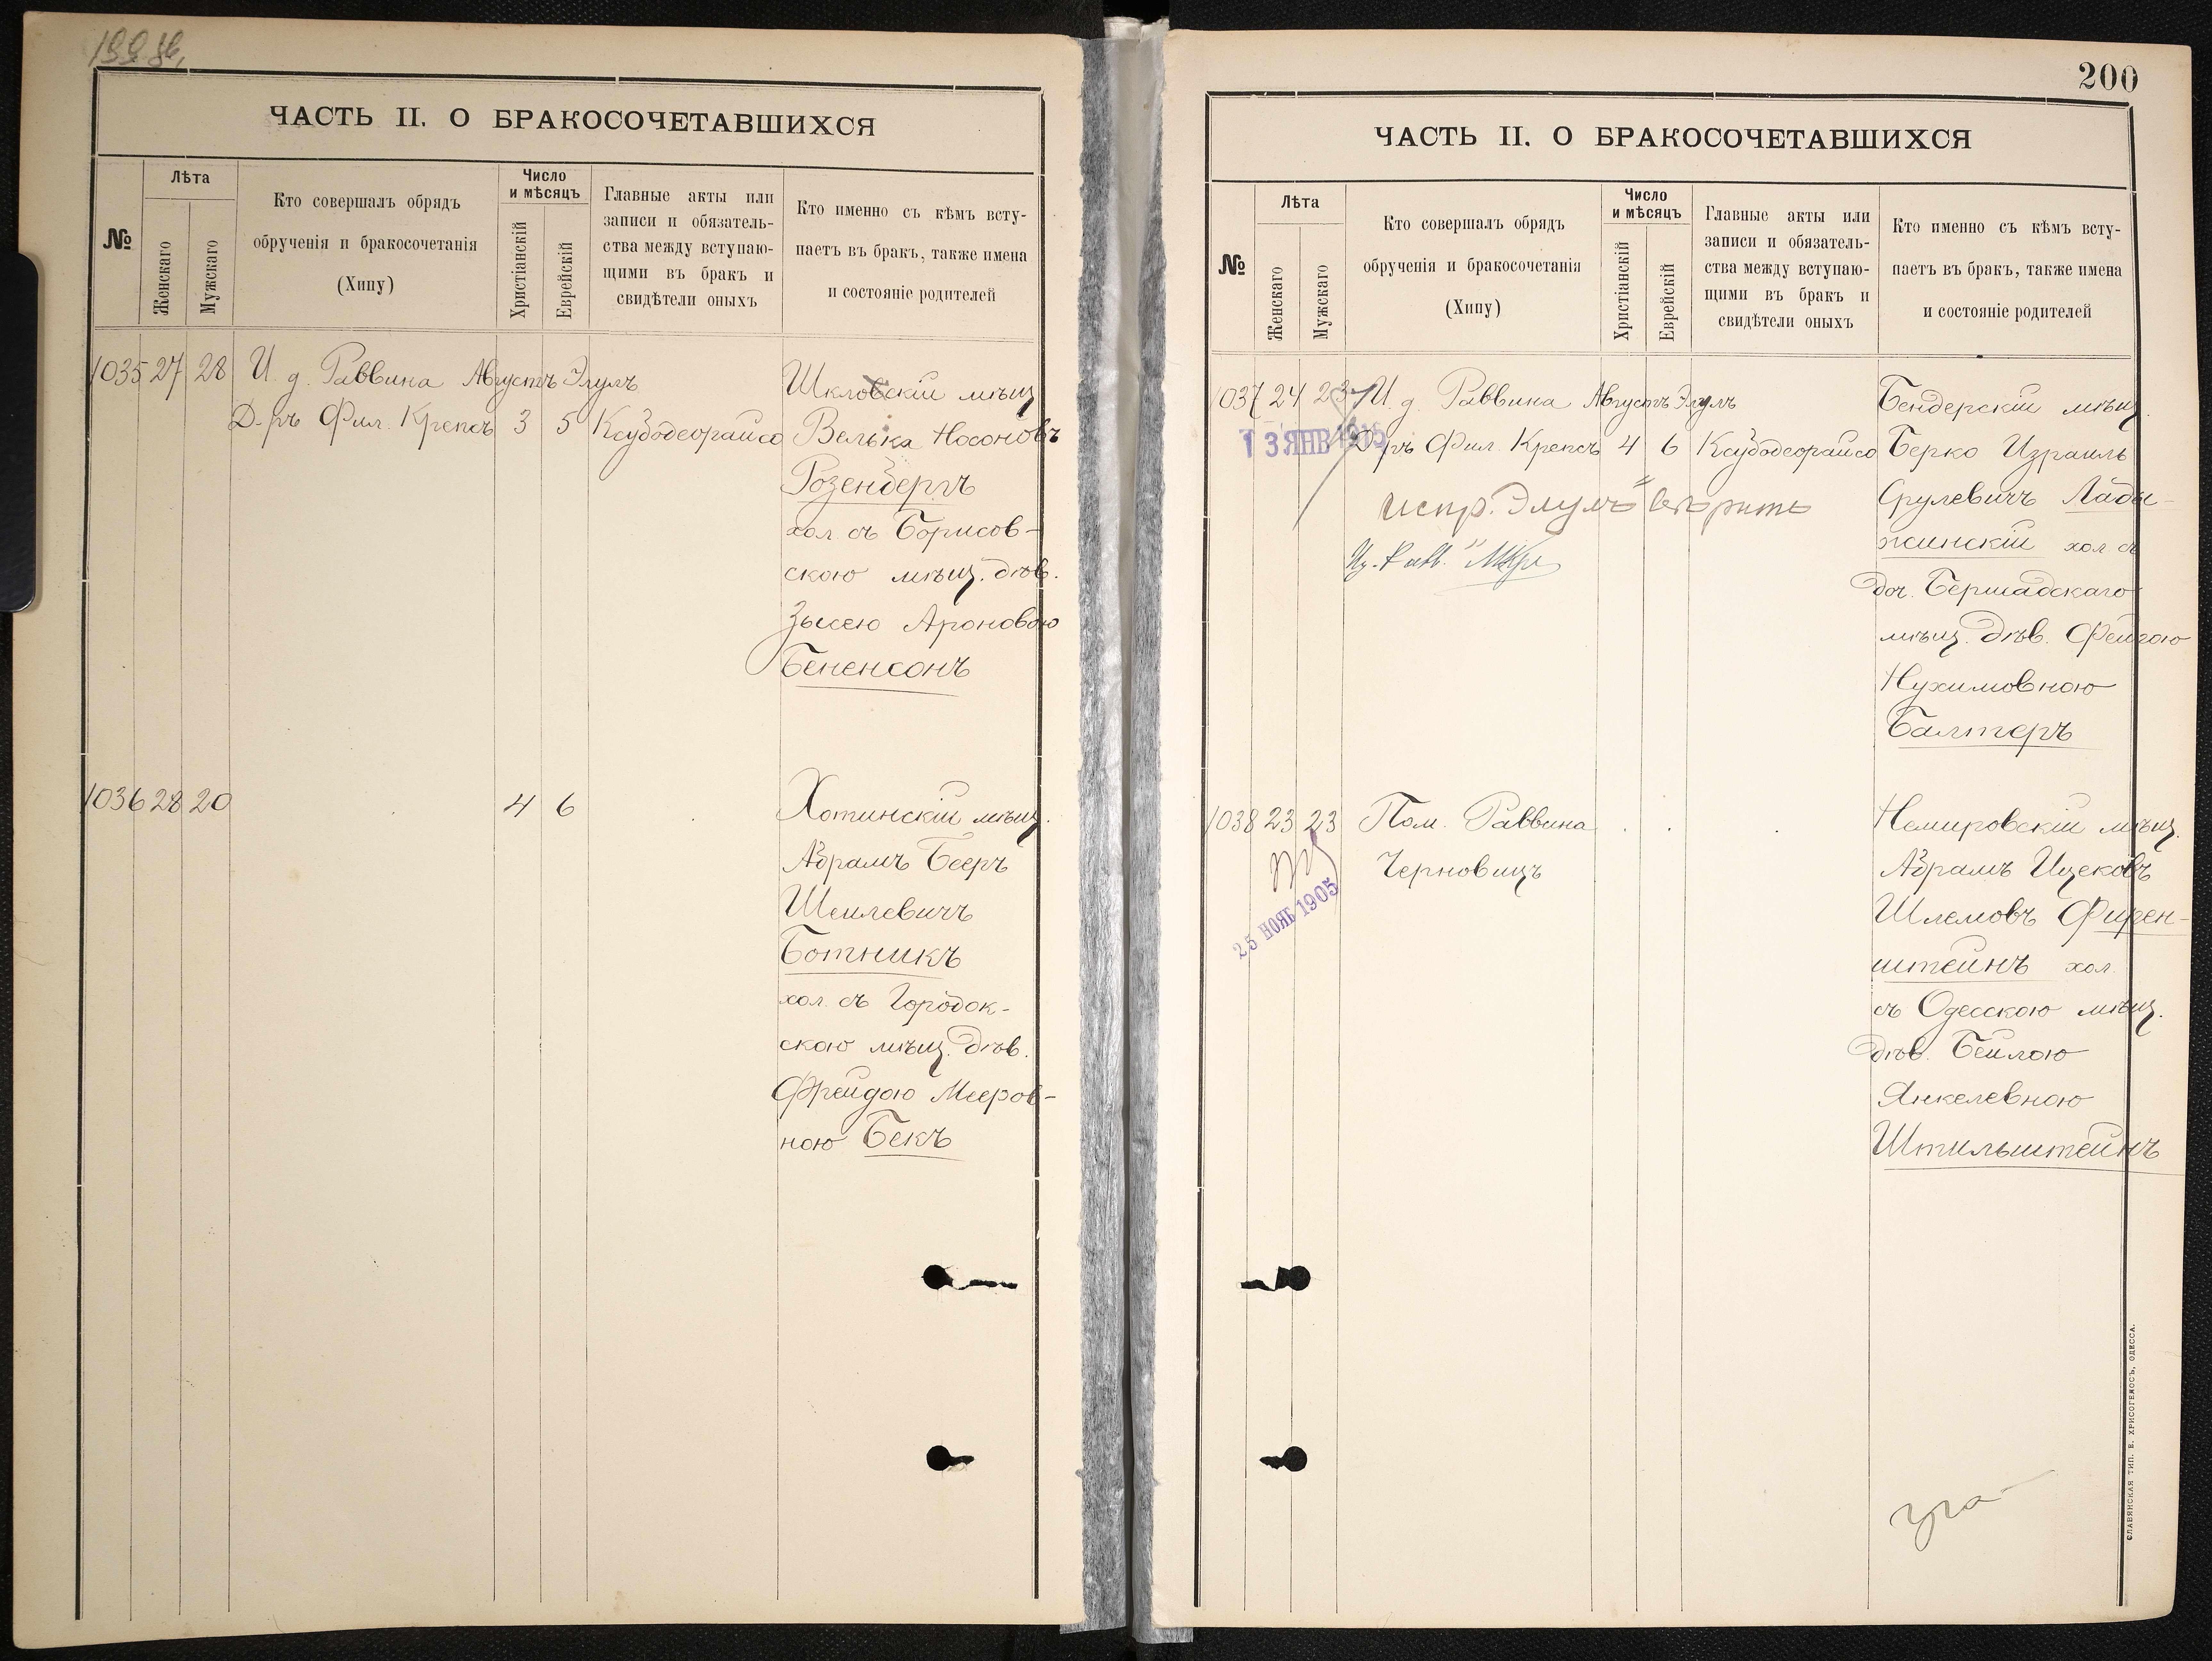 199 об.
ЧАСТЬ II. О БРАКОСОЧЕТАВШИХСЯ
№
Лѣта
Женскаго
Мужскаго
Кто совершалъ обрядъ
обрученія и бракосочетанія
(Хипу)
Число
и мѣсяцъ
Христіанскій
Еврейскій
Главные акты или
записи и обязатель-
ства между вступаю-
щими въ бракъ и
свидѣтели оныхъ
Кто именно съ кѣмъ всту-
паетъ въ бракъ, также имена
и состояніе родителей
1035 27 28 И. д. Раввина Августъ Элулъ Шкловскій мѣщ
Д-ръ Фил. Крепсъ 3 5 Ксубодеорайсо Велька Носоновъ
Розенбергъ
хол съ Борисов-
скою мѣщ. дѣв.
Зысею Ароновою
Бененсонъ
1036 28 20 4 6 Хотинскій мѣщ.
Абрамъ Бееръ
Шеилевичъ
Ботникъ
хол. съ Городок-
скою мѣщ. дѣв.
Фрейдою Мееров-
ною Бекъ
200
ЧАСТЬ II. О БРАКОСОЧЕТАВШИХСЯ
№
Лѣта
Женскаго
Мужскаго
Кто совершалъ обрядъ
обрученія и бракосочетанія
(Хипу)
Число
и мѣсяцъ
Христіанскій
Еврейскій
Главные акты или
записи и обязатель-
ства между вступаю-
щими въ бракъ и
свидѣтели оныхъ
Кто именно съ кѣмъ всту-
паетъ въ бракъ, также имена
и состояніе родителей
1037 24 23 И. д. Раввина Августъ Элулъ Бендерскій мѣщ.
13 ЯНВ 1915 Д-ръ Фил. Крепсъ 4 6 Ксубодеорайсо Берко Израиль
испр. Элулъ" вѣрить Срулевичъ Лады-
жинскій хол. съ
доч. Бершадскаго
мѣщ. дѣв. Фейгою
Нухимовною
Балтеръ
1038 23 23 Пом. Раввина Немировскій мѣщ.
Черновицъ Абрамъ Ицековъ
25 НОЯБ 1905 Шлемовъ Фирен-
штейнъ хол.
съ Одесскою мѣщ.
дѣв. Бейлою
Янкелевною
Штильштейнъ
СЛАВЯНСКАЯ ТИП. Е. ХРИСОГЕЛОСЪ, ОДЕССА.